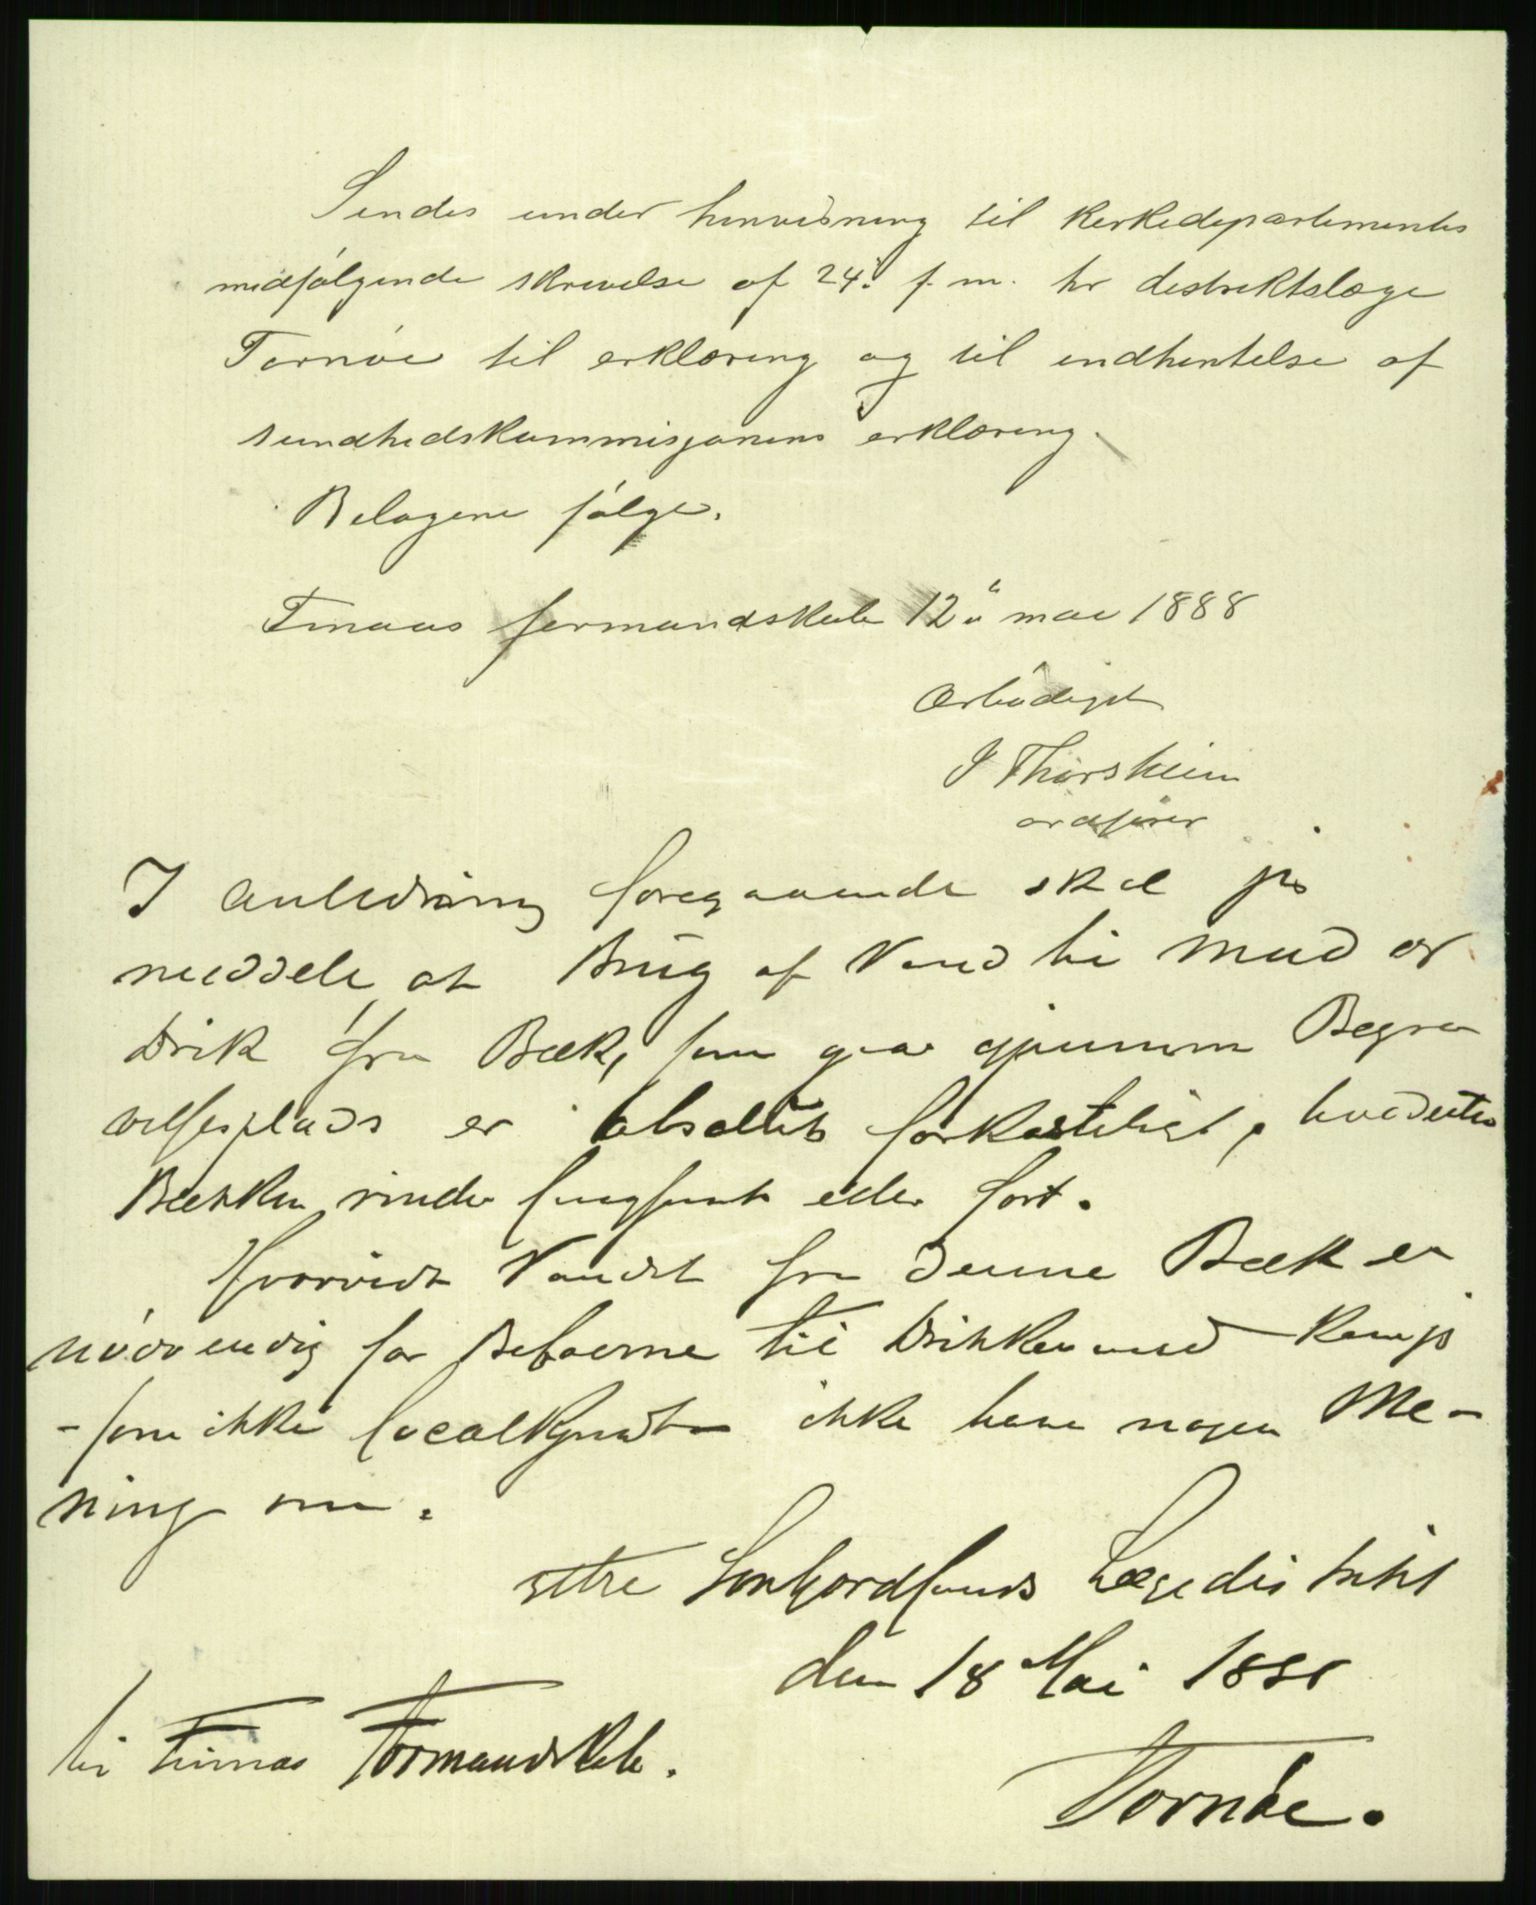 Sendes under henvisning til Kerkedepartementets
medfølgende skrivelse af 24' f. m. hr destriktslæge
Tornøe til erklæring og til indhentelse af
sundhedskommisjonens erklæring.
Belagene følge.
Finaas formandskab 12" mai 1888
Ærbødigst
J Thorsheim
ordfører
I Anledning foregaaende skal jeg
meddele at Brug af Vand til Mad og
Drik fra Bæk, som gaar gjennem Begra
velsesplads er absolut forkasteligt, hvadenten
Bækken rinder langsomt eller fort.
Hvorvidt Vandet fra denne Bæk er
nødvendig for Beboerne til Drikkevand kan jeg
- som ikke localkjendt - ikke have nogen Me-
ning om.
ytre Søndhordlands Lægedistrikt
den 18 Mai 1888
Til Finnas Formandskab.
Tornøe.